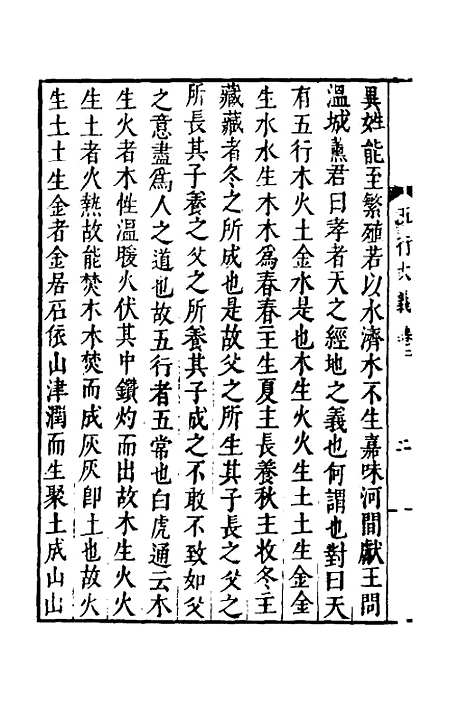 五行大義卷二
二
異姓能至繁殖若以水濟水不生嘉味河間獻王問
溫城董君曰孝者天之經地之義也何謂也對曰天
有五行木火土金水是也木生火火生土土生金金
生水水生木木爲春春主生夏主長養秋主收冬主
藏藏者冬之所成也是故父之所生其子長之父之
所長其子養之父之所養其子成之不敢不致如父
之意盡爲人之道也故五行者五常也白虎通云木
生火者木性溫暖火伏其中鑽灼而出故木生火火
生土者火熱故能焚木木焚而成灰灰卽土也故火
生土土生金者金居石依山津潤而生聚土成山山